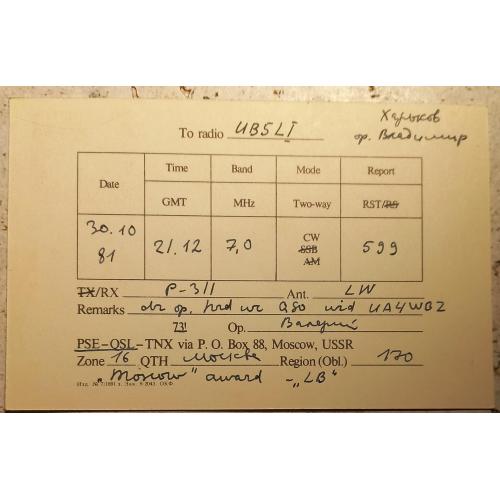 Харьков
To radio UB5LI ор. Владимир
Date Time Band Mode Report
GMT MHz Two-way RST/RS
30.10 81 21.12 7,0 CW SSB AM 599
TX/RX P-311 Ant. LW
Remarks dr op. hrd ur QSO wid UA4WBZ
73! Op. Валерий
PSE-QSL-TNX via P. O. Box 88, Moscow, USSR
Zone 16 QTH Москва Region (Obl.) 170
„Moscow" award - „LB"